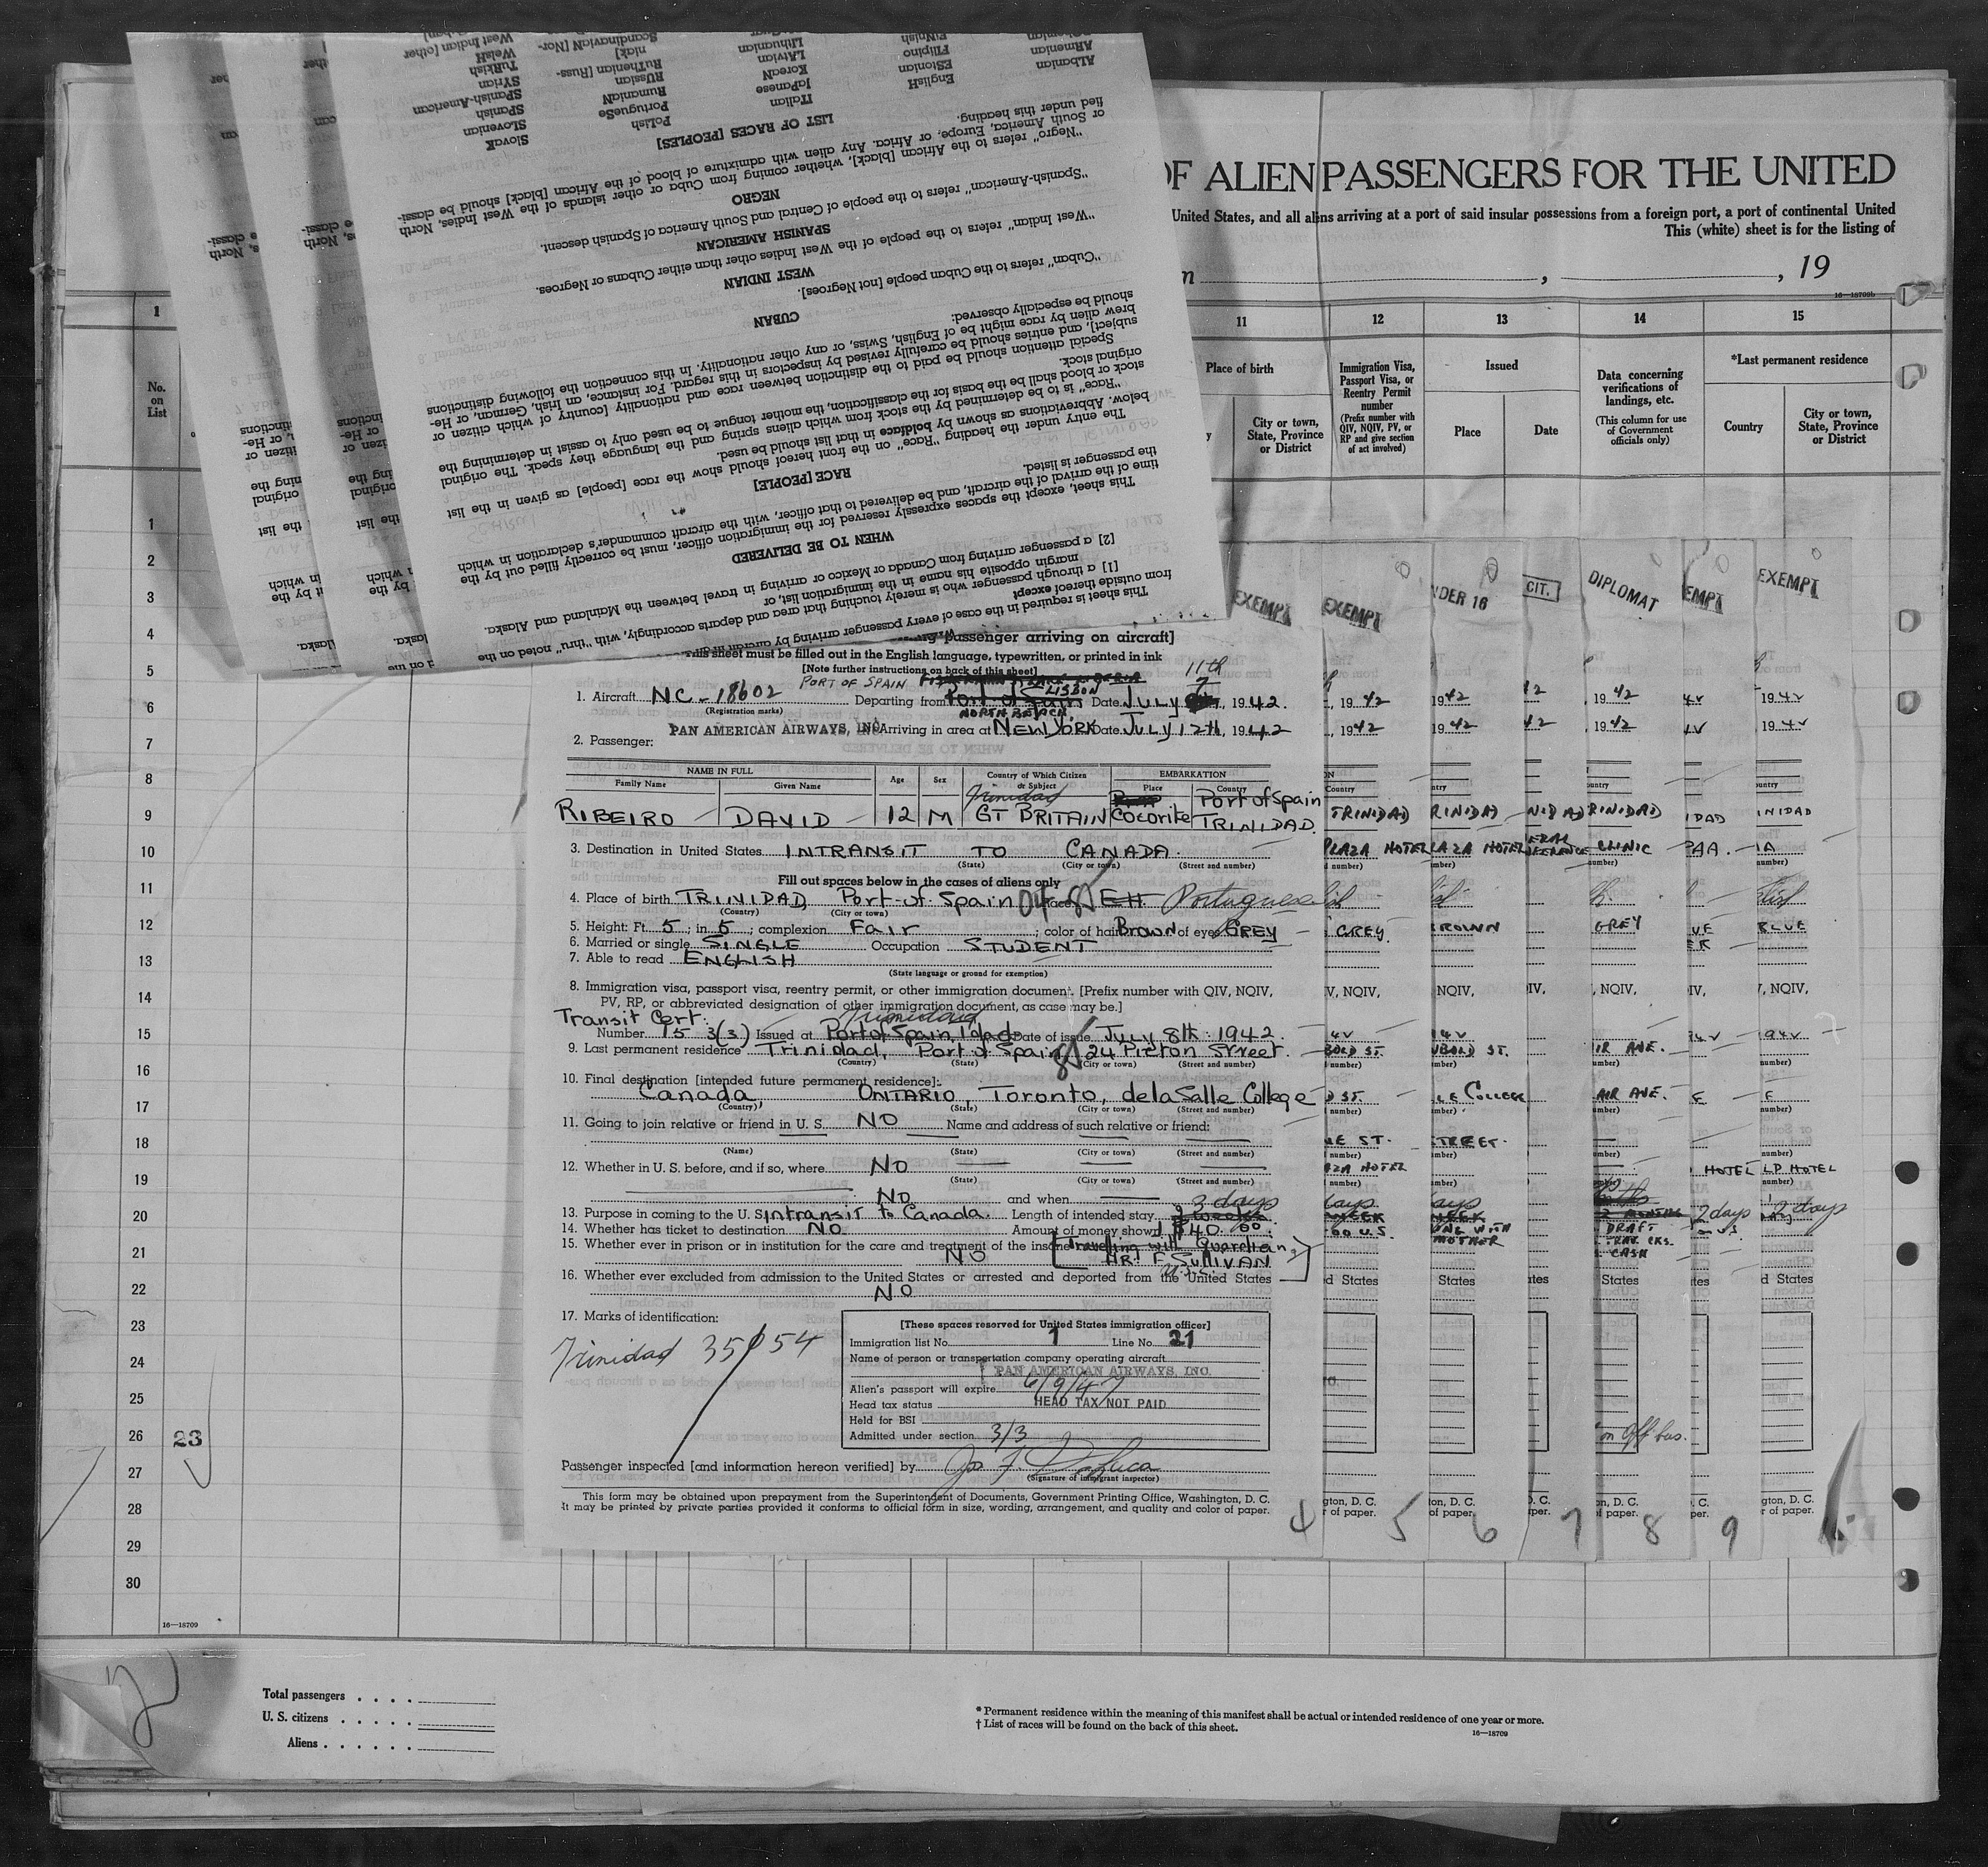 OF ALIEN PASSENGERS FOR THE UNITED
United States, and all aliens arriving at a port of said insular possessions from a foreign port, a port of continental United
This (white) sheet is for the listing of
, 19
16—18709b
1
11
12
13
14
15
No. on List
Place of birth
City or town, State, Province or District
Immigration Visa, Passport Visa, or Reentry Permit number
(Prefix number with QIV, NQIV, PV, or RP and give section of act involved)
Issued
Place
Date
Data concerning verifications of landings, etc.
(This column for use of Government officials only)
*Last permanent residence
Country
City or town, State, Province or District
This sheet is required in the case of every passenger arriving by aircraft in
from outside thereof except
[1] a through passenger who is merely touching that area and departs accordingly, with "thru" noted on the
margin opposite his name in the immigration list, or
[2] a passenger arriving from Canada or Mexico or arriving in travel between the Mainland and Alaska.
WHEN TO BE DELIVERED
This sheet, except the spaces expressly reserved for the immigration officer, must be correctly filled out by the
time of the arrival of the aircraft, and be delivered to that officer, with the aircraft commander's declaration in which
the passenger is listed.
RACE [PEOPLE]
The entry under the heading "Race" on the front hereof should show the race [people] as given in the list
below. Abbreviations as shown by boldface in that list should be used.
"Race" is to be determined by the stock from which aliens spring and the language they speak. The original
stock or blood shall be the basis for the classification, the mother tongue to be used only to assist in determining the
original stock.
Special attention should be paid to the distinction between race and nationality [country of which citizen or
subject], and entries should be carefully revised by inspectors in this regard. For instance, an Irish, German, or He-
brew alien by race might be of English, Swiss, or any other nationality. In this connection the following distinctions
should be especially observed:
CUBAN
"Cuban" refers to the Cuban people [not Negroes].
WEST INDIAN
"West Indian" refers to the people of the West Indies other than either Cubans or Negroes.
SPANISH AMERICAN
"Spanish-American" refers to the people of Central and South America of Spanish descent.
NEGRO
"Negro" refers to the African [black], whether coming from Cuba or other islands of the West Indies, North
or South America, Europe, or Africa. Any alien with admixture of blood of the African [black] should be classi-
fied under this heading.
LIST OF RACES [PEOPLES]
ALbanian
ARmenian
EnglisH
EStonian
FIlipino
FiNnish
ITalian
JaPanese
KoreaN
LAtvian
LIthuanian
PoLish
PortugueSe
RumaniaN
RUssian
RuThenian [Russ-
niak]
ScandinaviaN [Nor-
SlovaK
SLovenian
SPanish
SPanish-American
SYrian
TuRkish
WelsH
West Indian [other
EXEMPT
EXEMPT
NDER 16
CIT.
DIPLOMAT
EMPT
EXEMPT
passenger arriving on aircraft]
This sheet must be filled out in the English language, typewritten, or printed in ink
[Note further instructions on back of this sheet]
PORT OF SPAIN
LISBON
11th
1. Aircraft NC-18602 Departing from Port of Spain Date July 7, 1942.
(Registration marks)
NORTH BEACH,
PAN AMERICAN AIRWAYS, INC Arriving in area at NEW YORK Date July 12th, 1942
2. Passenger:
NAME IN FULL
Family Name
Given Name
Age
Sex
Country of Which Citizen or Subject
EMBARKATION
Place
Country
Trinidad
RIBEIRO DAVID 12 M GT BRITAIN Cocorite Port of Spain TRINIDAD.
3. Destination in United States INTRANSIT TO CANADA.
(State) (City or town) (Street and number)
Fill out spaces below in the cases of aliens only
4. Place of birth TRINIDAD Port-of-Spain Race EH Portuguese
(Country) (City or town)
5. Height: Ft. 5; in 5; complexion Fair; color of hair Brown of eyes GREY
6. Married or single SINGLE Occupation STUDENT
7. Able to read ENGLISH
(State language or ground for exemption)
8. Immigration visa, passport visa, reentry permit, or other immigration document. [Prefix number with QIV, NQIV,
PV, RP, or abbreviated designation of other immigration document, as case may be.]
Transit Cert: Trinidad
Number 15 3(3) Issued at Port of Spain, Tdad Date of issue July 8th 1942
9. Last permanent residence Trinidad, Port of Spain, 24 Picton Street.
(Country) (State) (City or town) (Street and number)
10. Final destination [intended future permanent residence]:
Canada ONTARIO, Toronto, delaSalle College
(Country) (State) (City or town) (Street and number)
11. Going to join relative or friend in U. S. NO Name and address of such relative or friend:
(Name) (State) (City or town) (Street and number)
12. Whether in U. S. before, and if so, where No
(State) (City or town) (Street and number)
No and when
3 days
13. Purpose in coming to the U. S. Intransit to Canada. Length of intended stay 2 weeks
14. Whether has ticket to destination NO. Amount of money shown $40.00
15. Whether ever in prison or in institution for the care and treatment of the insane NO
[Travelling with Guardian, MR. F SULLIVAN]
16. Whether ever excluded from admission to the United States or arrested and deported from the United States
NO
17. Marks of identification:
Trinidad 35054
[These spaces reserved for United States immigration officer]
Immigration list No. 1 Line No. 21
Name of person or transportation company operating aircraft
PAN AMERICAN AIRWAYS, INC.
Alien's passport will expire 6/9/47
Head tax status HEAD TAX NOT PAID
Held for BSI
Admitted under section 3/3
Passenger inspected [and information hereon verified] by
(Signature of immigrant inspector)
This form may be obtained upon prepayment from the Superintendent of Documents, Government Printing Office, Washington, D. C.
It may be printed by private parties provided it conforms to official form in size, wording, arrangement, and quality and color of paper.
4 5 6 7 8 9
TRINIDAD
PLAZA HOTEL
GREY
BROWN
GREY
BLUE
CLINIC
PAA.
COLLEGE
STREET.
HOTEL
2 days
2 days
DRAFT
CASH
MOTHER
on Off bus.
1
2
3
4
5
6
7
8
9
10
11
12
13
14
15
16
17
18
19
20
21
22
23
24
25
26
27
28
29
30
23
16—18709
2
Total passengers
U. S. citizens
Aliens
* Permanent residence within the meaning of this manifest shall be actual or intended residence of one year or more.
† List of races will be found on the back of this sheet.
16—18709